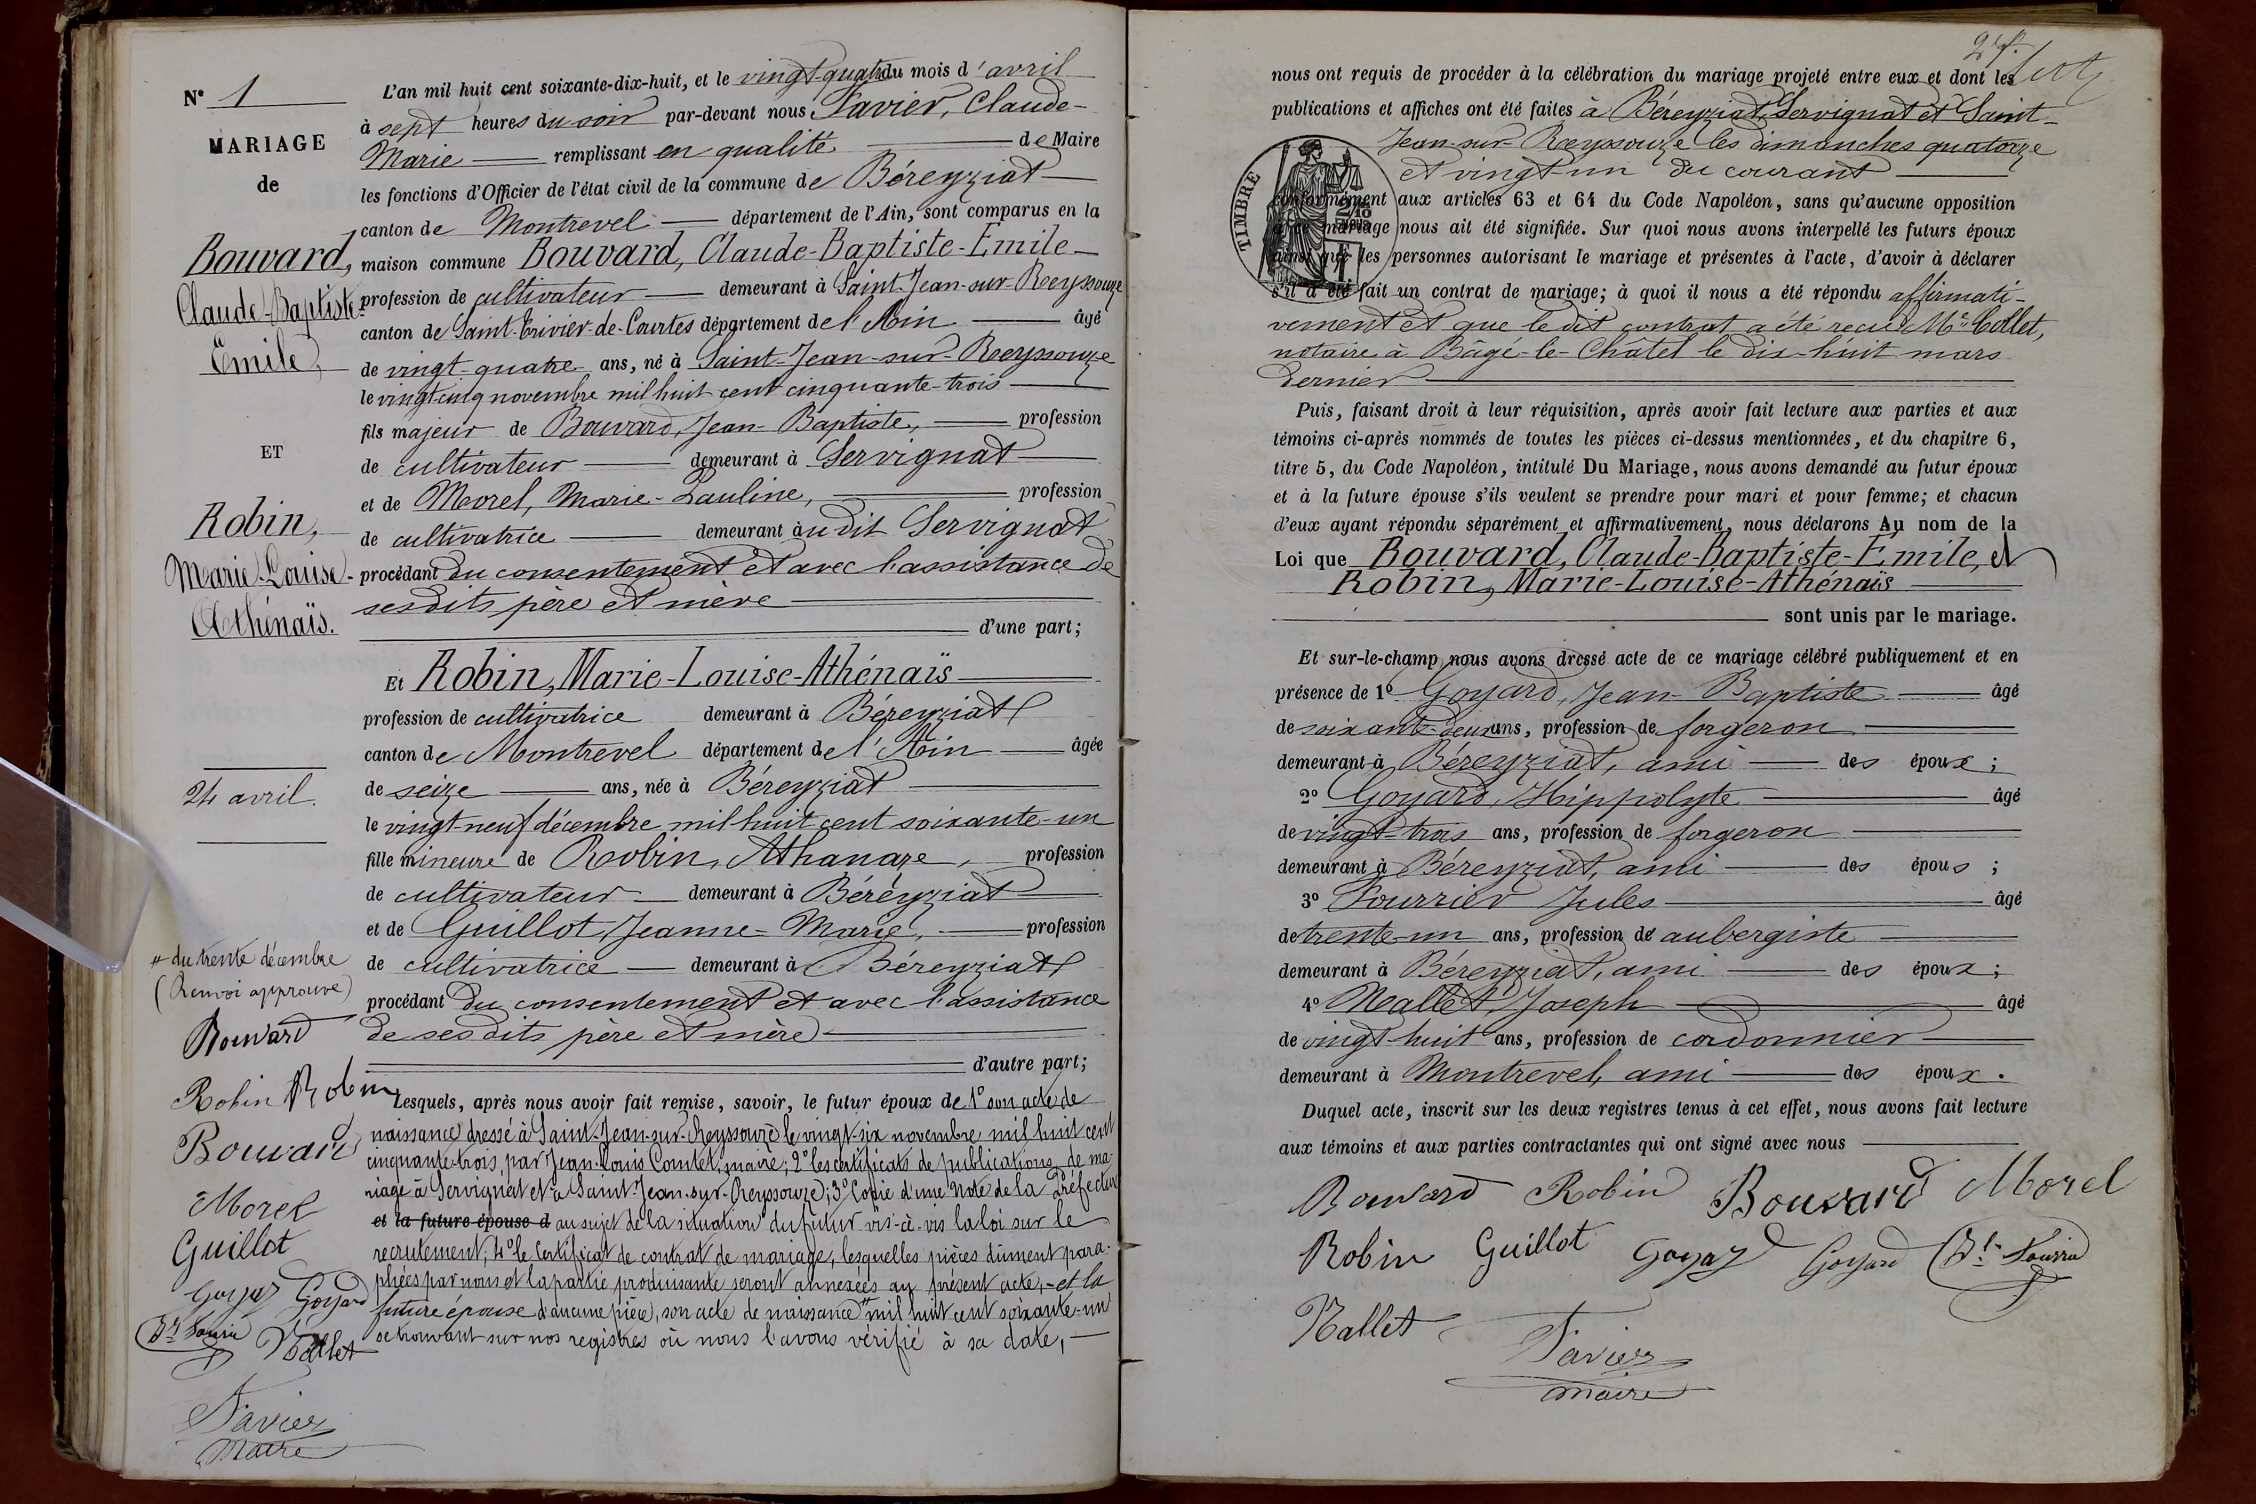 N° 1
MARIAGE
de
Bouvard,
Claude-Baptiste-
Émile,
ET
Robin,
Marie-Louise-
Athénaïs.
24 avril.
# du trente décembre
(Renvoi approuvé)
Bouvard
Robin Robin
Bouvard
Morel
Guillot
Goyaz Goyard
Mallet
Favier
Maire
L'an mil huit cent soixante-dix-huit, et le vingt-quatre du mois d'avril
à sept heures du soir par-devant nous Favier, Claude-
Marie remplissant en qualité de Maire
les fonctions d'Officier de l'état civil de la commune de Béreyziat
canton de Montrevel département de l'Ain, sont comparus en la
maison commune Bouvard, Claude-Baptiste-Émile
profession de cultivateur demeurant à Saint-Jean-sur-Reyssouze
canton de Saint-Trivier-de-Courtes département de l'Ain âgé
de vingt-quatre ans, né à Saint-Jean-sur-Reyssouze
le vingt-cinq novembre mil huit cent cinquante-trois
fils majeur de Bouvard, Jean-Baptiste, profession
de cultivateur demeurant à Servignat
et de Morel, Marie-Pauline, profession
de cultivatrice demeurant audit Servignat
procédant du consentement et avec l'assistance de
ses dits père et mère
d'une part;
Et Robin, Marie-Louise-Athénaïs
profession de cultivatrice demeurant à Béreyziat
canton de Montrevel département de l'Ain âgée
de seize ans, née à Béreyziat
le vingt-neuf décembre mil huit cent soixante-un
fille mineure de Robin, Athanaze, profession
de cultivateur demeurant à Béréyziat
et de Guillot, Jeanne-Marie, profession
de cultivatrice demeurant à Béreyziat
procédant du consentement et avec l'assistance
de ses dits père et mère
d'autre part;
Lesquels, après nous avoir fait remise, savoir, le futur époux de 1° son acte de
naissance dressé à Saint-Jean-sur-Reyssouze le vingt-six novembre mil huit cent
cinquante-trois, par Jean-Louis Comtet, maire; 2° les certificats de publications de ma-
riage à Servignat et à Saint-Jean-sur-Reyssouze; 3° Copie d'une note de la Préfecture
et la future épouse d au sujet de la situation du futur vis-à-vis la loi sur le
recrutement; 4° le Certificat de contrat de mariage, lesquelles pièces dûment para-
phées par nous et la partie produisante seront annexées au présent acte, et la
future épouse d'aucune pièce, son acte de naissance # mil huit cent soixante-un
se trouvant sur nos registres où nous l'avons vérifié à sa date,
nous ont requis de procéder à la célébration du mariage projeté entre eux et dont les
publications et affiches ont été faites à Béreyziat, Servignat et Saint-
Jean-sur-Reyssouze les dimanches quatorze
et vingt-un du courant
TIMBRE
conformément aux articles 63 et 64 du Code Napoléon, sans qu'aucune opposition
à ce mariage nous ait été signifiée. Sur quoi nous avons interpellé les futurs époux
ainsi que les personnes autorisant le mariage et présentes à l'acte, d'avoir à déclarer
s'il a été fait un contrat de mariage; à quoi il nous a été répondu affirmati-
vement et que le dit contrat a été reçu Me Collet,
notaire à Bâgé-le-Châtel le dix-huit mars
dernier
Puis, faisant droit à leur réquisition, après avoir fait lecture aux parties et aux
témoins ci-après nommés de toutes les pièces ci-dessus mentionnées, et du chapitre 6,
titre 5, du Code Napoléon, intitulé Du Mariage, nous avons demandé au futur époux
et à la future épouse s'ils veulent se prendre pour mari et pour femme; et chacun
d'eux ayant répondu séparément et affirmativement, nous déclarons Au nom de la
Loi que Bouvard, Claude-Baptiste-Émile, et
Robin, Marie-Louise-Athénaïs
sont unis par le mariage.
Et sur-le-champ nous avons dressé acte de ce mariage célébré publiquement et en
présence de 1° Goyard, Jean-Baptiste âgé
de soixante-deux ans, profession de forgeron
demeurant à Béreyziat, ami des époux;
2° Goyard, Hippolyte âgé
de vingt-trois ans, profession de forgeron
demeurant à Béreyziat, ami des épous;
3° Fourrier Jules âgé
de trente-un ans, profession de aubergiste
demeurant à Béreyziat, ami des époux;
4° Mallet, Joseph âgé
de vingt-huit ans, profession de cordonnier
demeurant à Montrevel, ami des époux.
Duquel acte, inscrit sur les deux registres tenus à cet effet, nous avons fait lecture
aux témoins et aux parties contractantes qui ont signé avec nous
Bouvard Robin Bouvard Morel
Robin Guillot Goyaz Goyard
Mallet
Favier
Maire